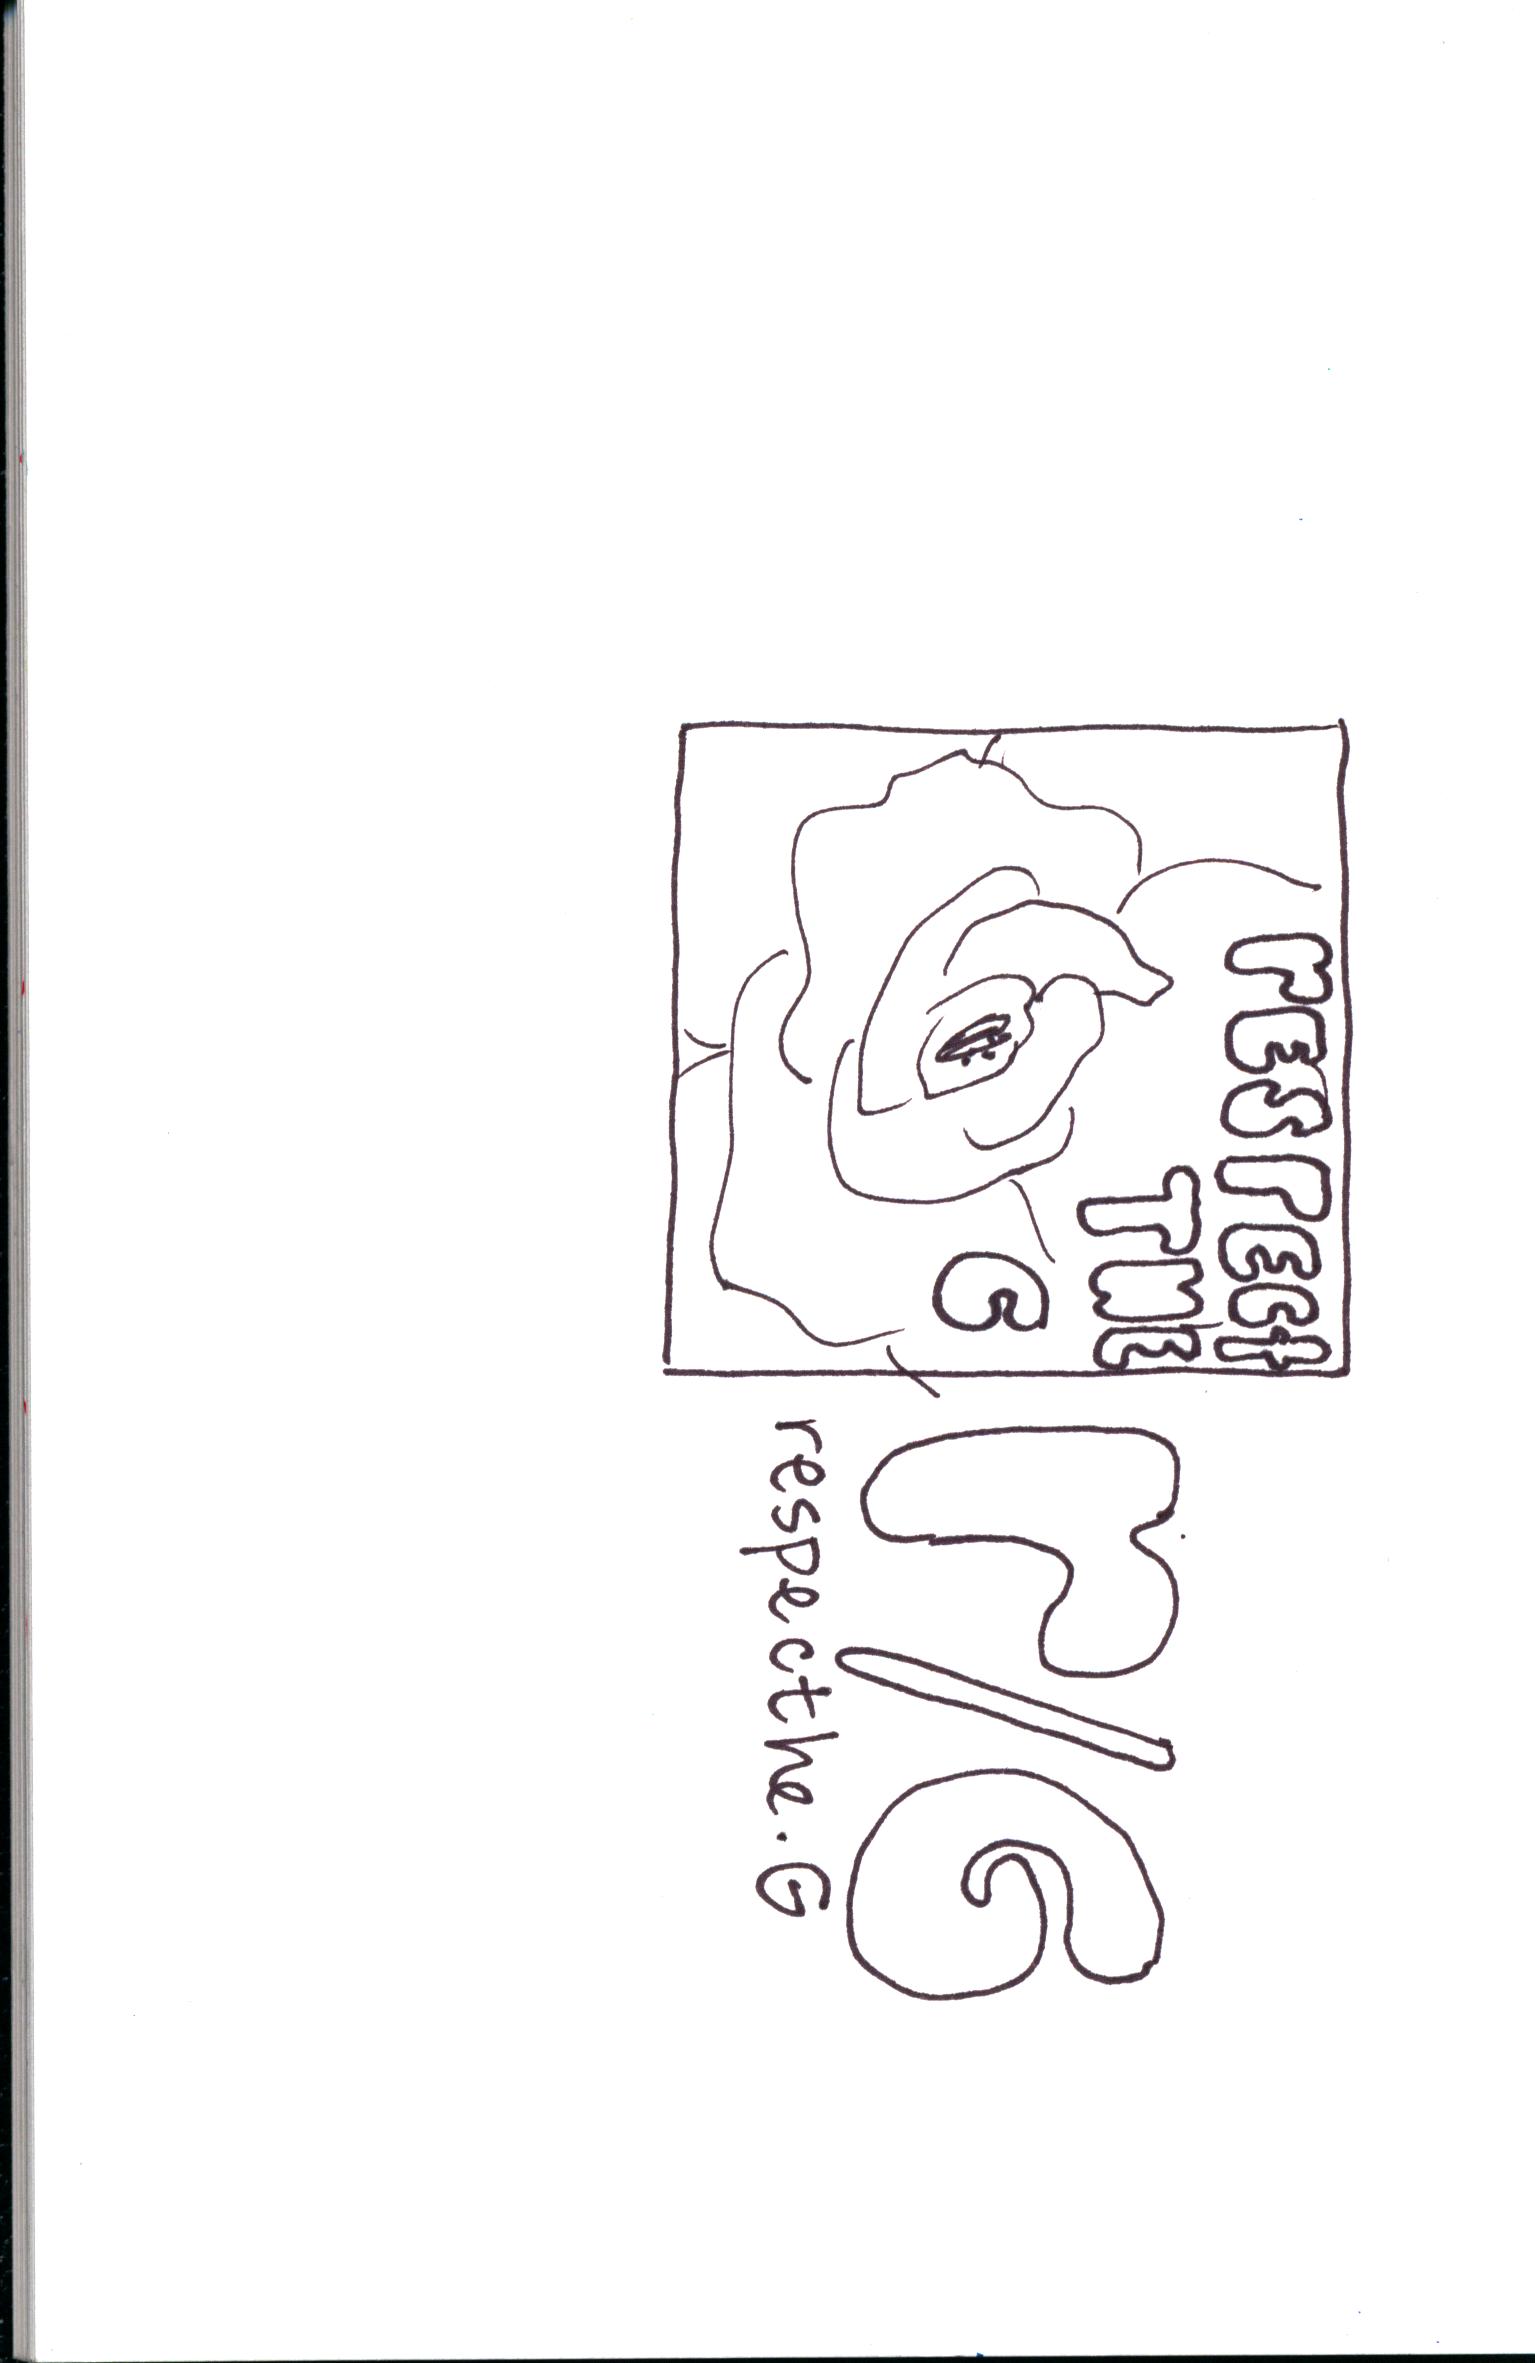 rESPEct
THE
G
r/G
respecthe.G